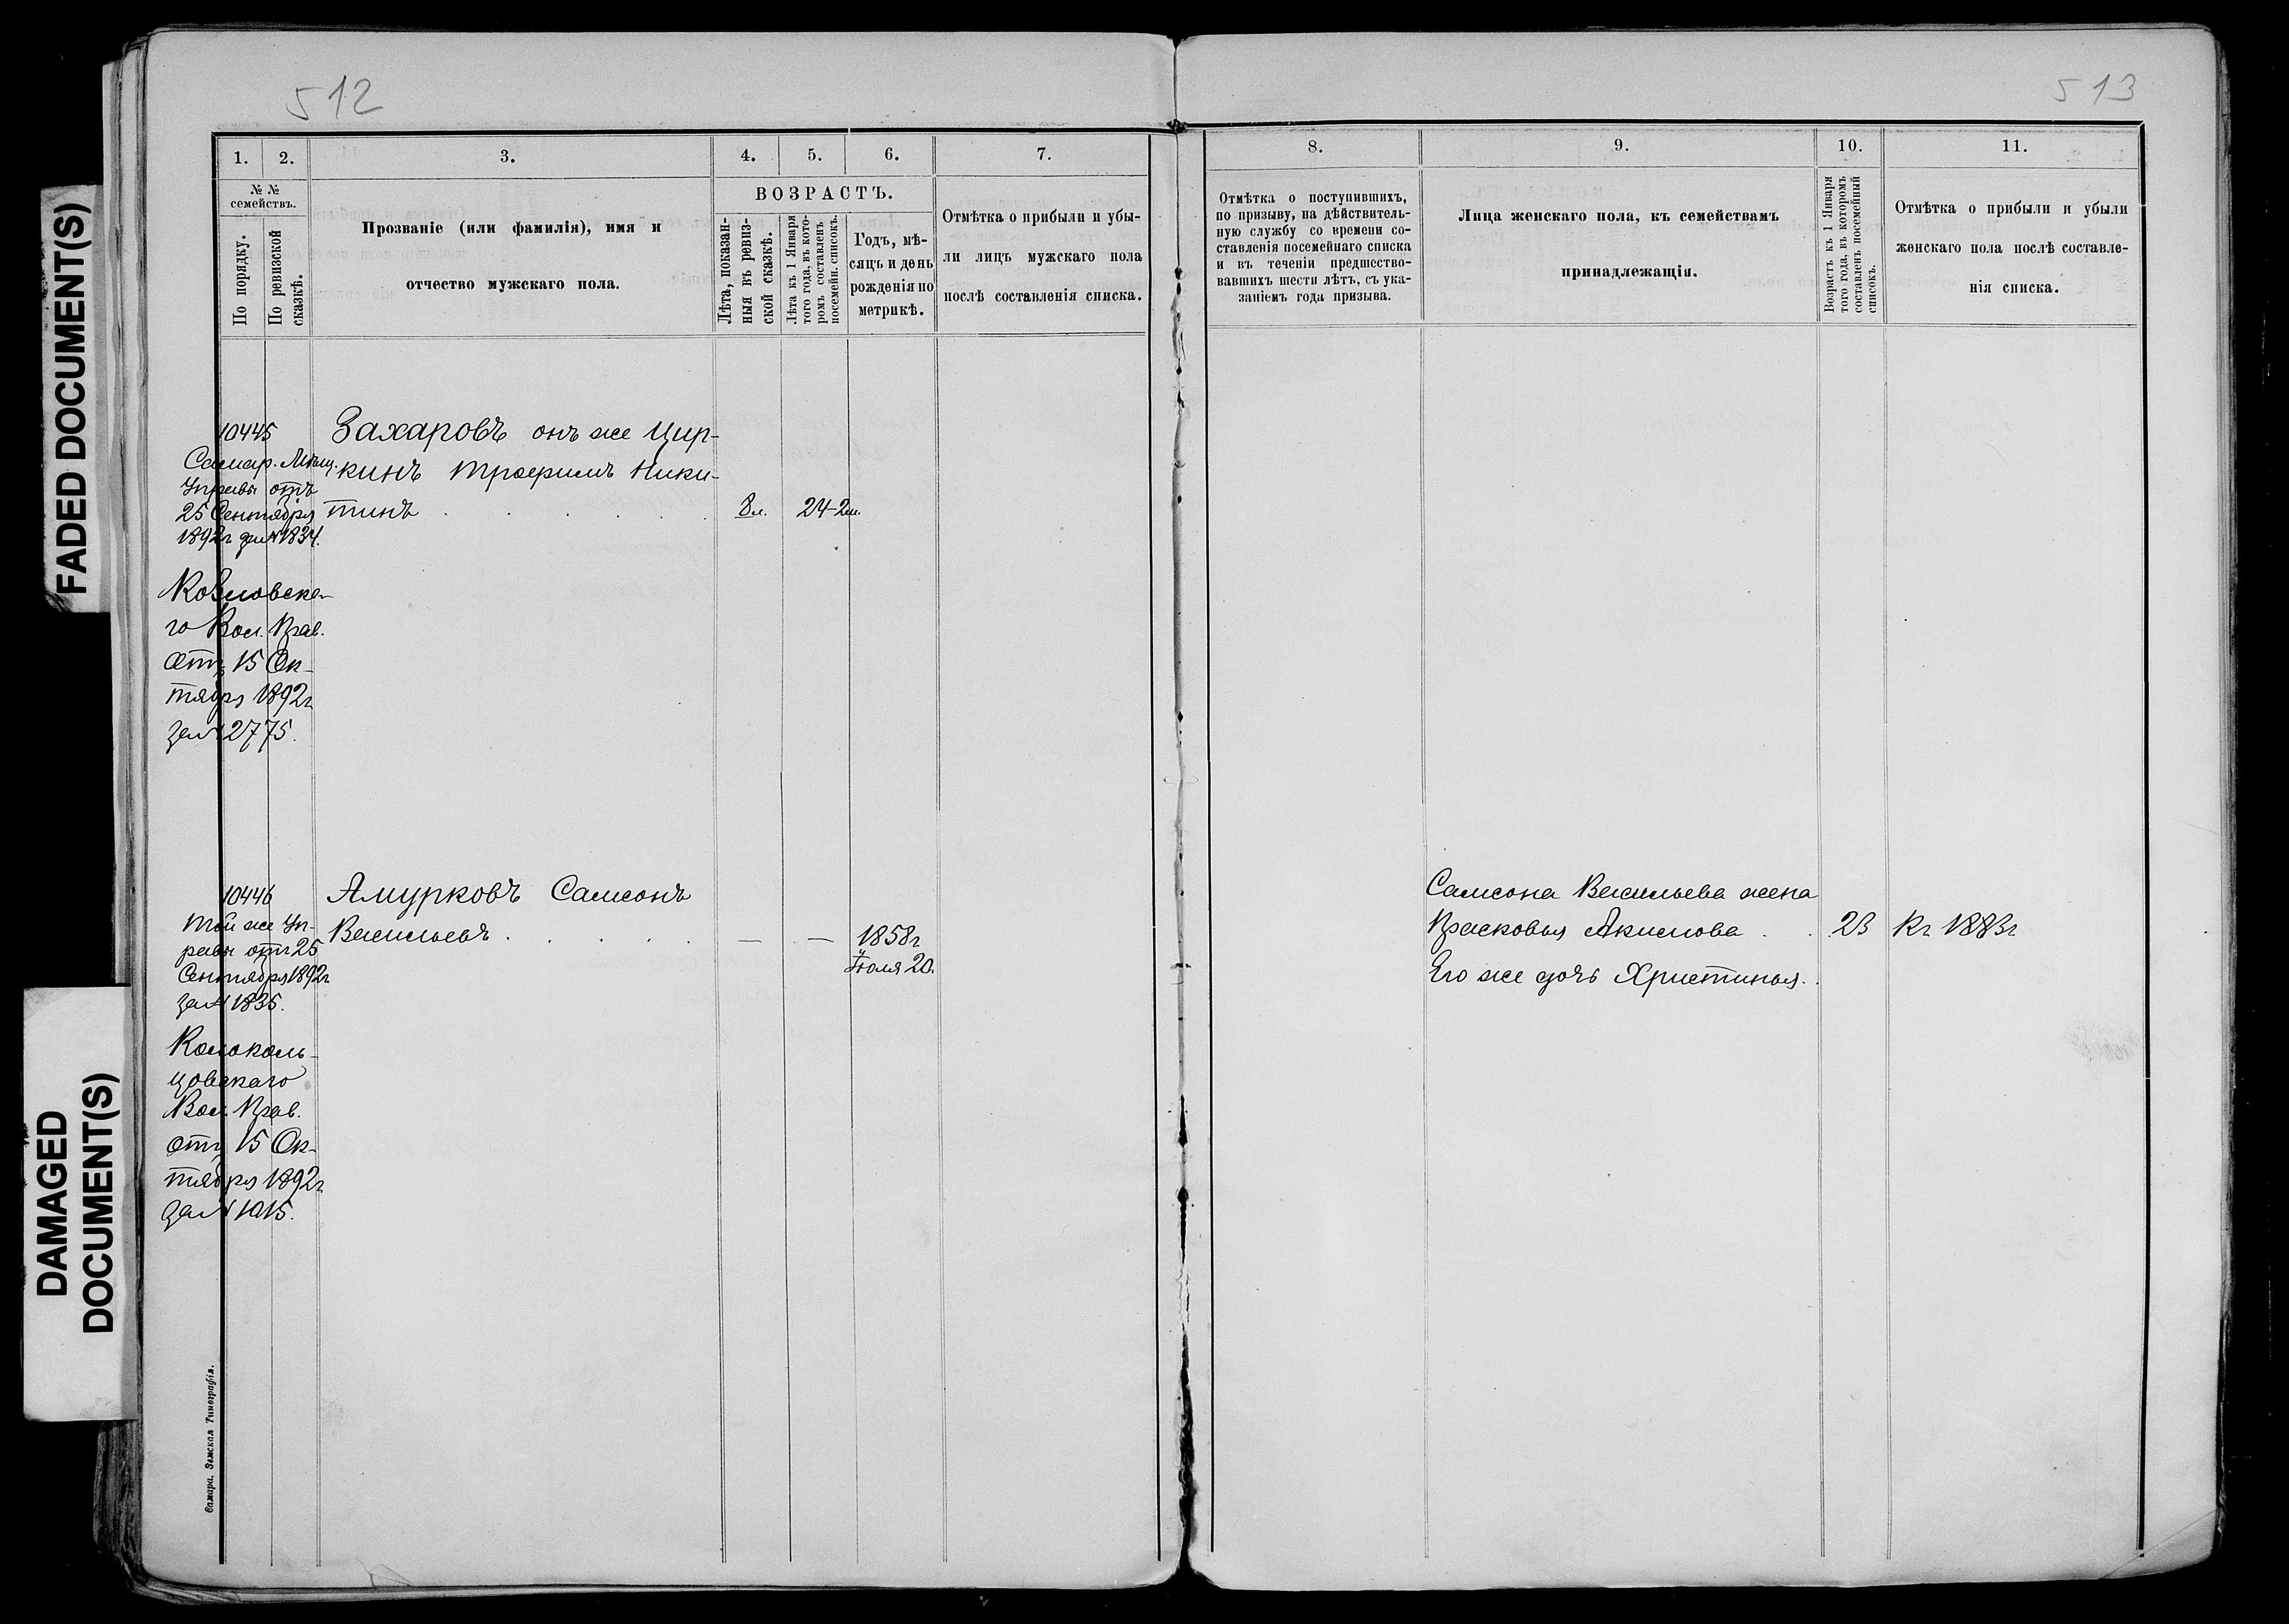 FADED DOCUMENT(S)
DAMAGED
DOCUMENT(S)
512
1.
2.
3.
4.
5.
6.
7.
№ №
семействъ.
По порядку.
По ревизской
сказкѣ.
Прозваніе (или фамилія), имя и
отчество мужскаго пола.
ВОЗРАСТЪ.
Лѣта, показан-
ныя въ ревиз-
ской сказкѣ.
Лѣта къ 1 Января
того года, въ кото-
ромъ составленъ
посемейн. списокъ.
Годъ, мѣ-
сяцъ и день
рожденія по
метрикѣ.
Отмѣтка о прибыли и убы-
ли лицъ мужскаго пола
послѣ составленія списка.
10445
Самар. Мѣщ.
Управы отъ
25 Сентября
1892г за № 1834.
Козловска-
го Вол. Прав.
отъ 15 Ок-
тября 1892г
за № 2775.
Захаровъ онъ же Цир-
кинъ Трофимъ Ники-
тинъ
8 л.
24-2м.
10446
Той же Уп-
равы отъ 25
Сентября 1892г
за № 1835.
Колоколь-
цовскаго
Вол. Прав.
отъ 15 Ок-
тября 1892г
за № 1015.
Амурковъ Самсонъ
Васильевъ
—
—
1858г
Іюля 20.
Самара. Земская Типографія.
513
8.
9.
10.
11.
Отмѣтка о поступившихъ,
по призыву, на дѣйствитель-
ную службу со времени со-
ставленія посемейнаго списка
и въ теченіи предшество-
вавшихъ шести лѣтъ, съ ука-
заніемъ года призыва.
Лица женскаго пола, къ семействамъ
принадлежащія.
Возрастъ къ 1 Января
того года, въ которомъ
составленъ посемейный
списокъ.
Отмѣтка о прибыли и убыли
женскаго пола послѣ составле-
нія списка.
Самсона Васильева жена
Прасковья Акимова
23
Къ 1883г
Его же дочь Христинья.